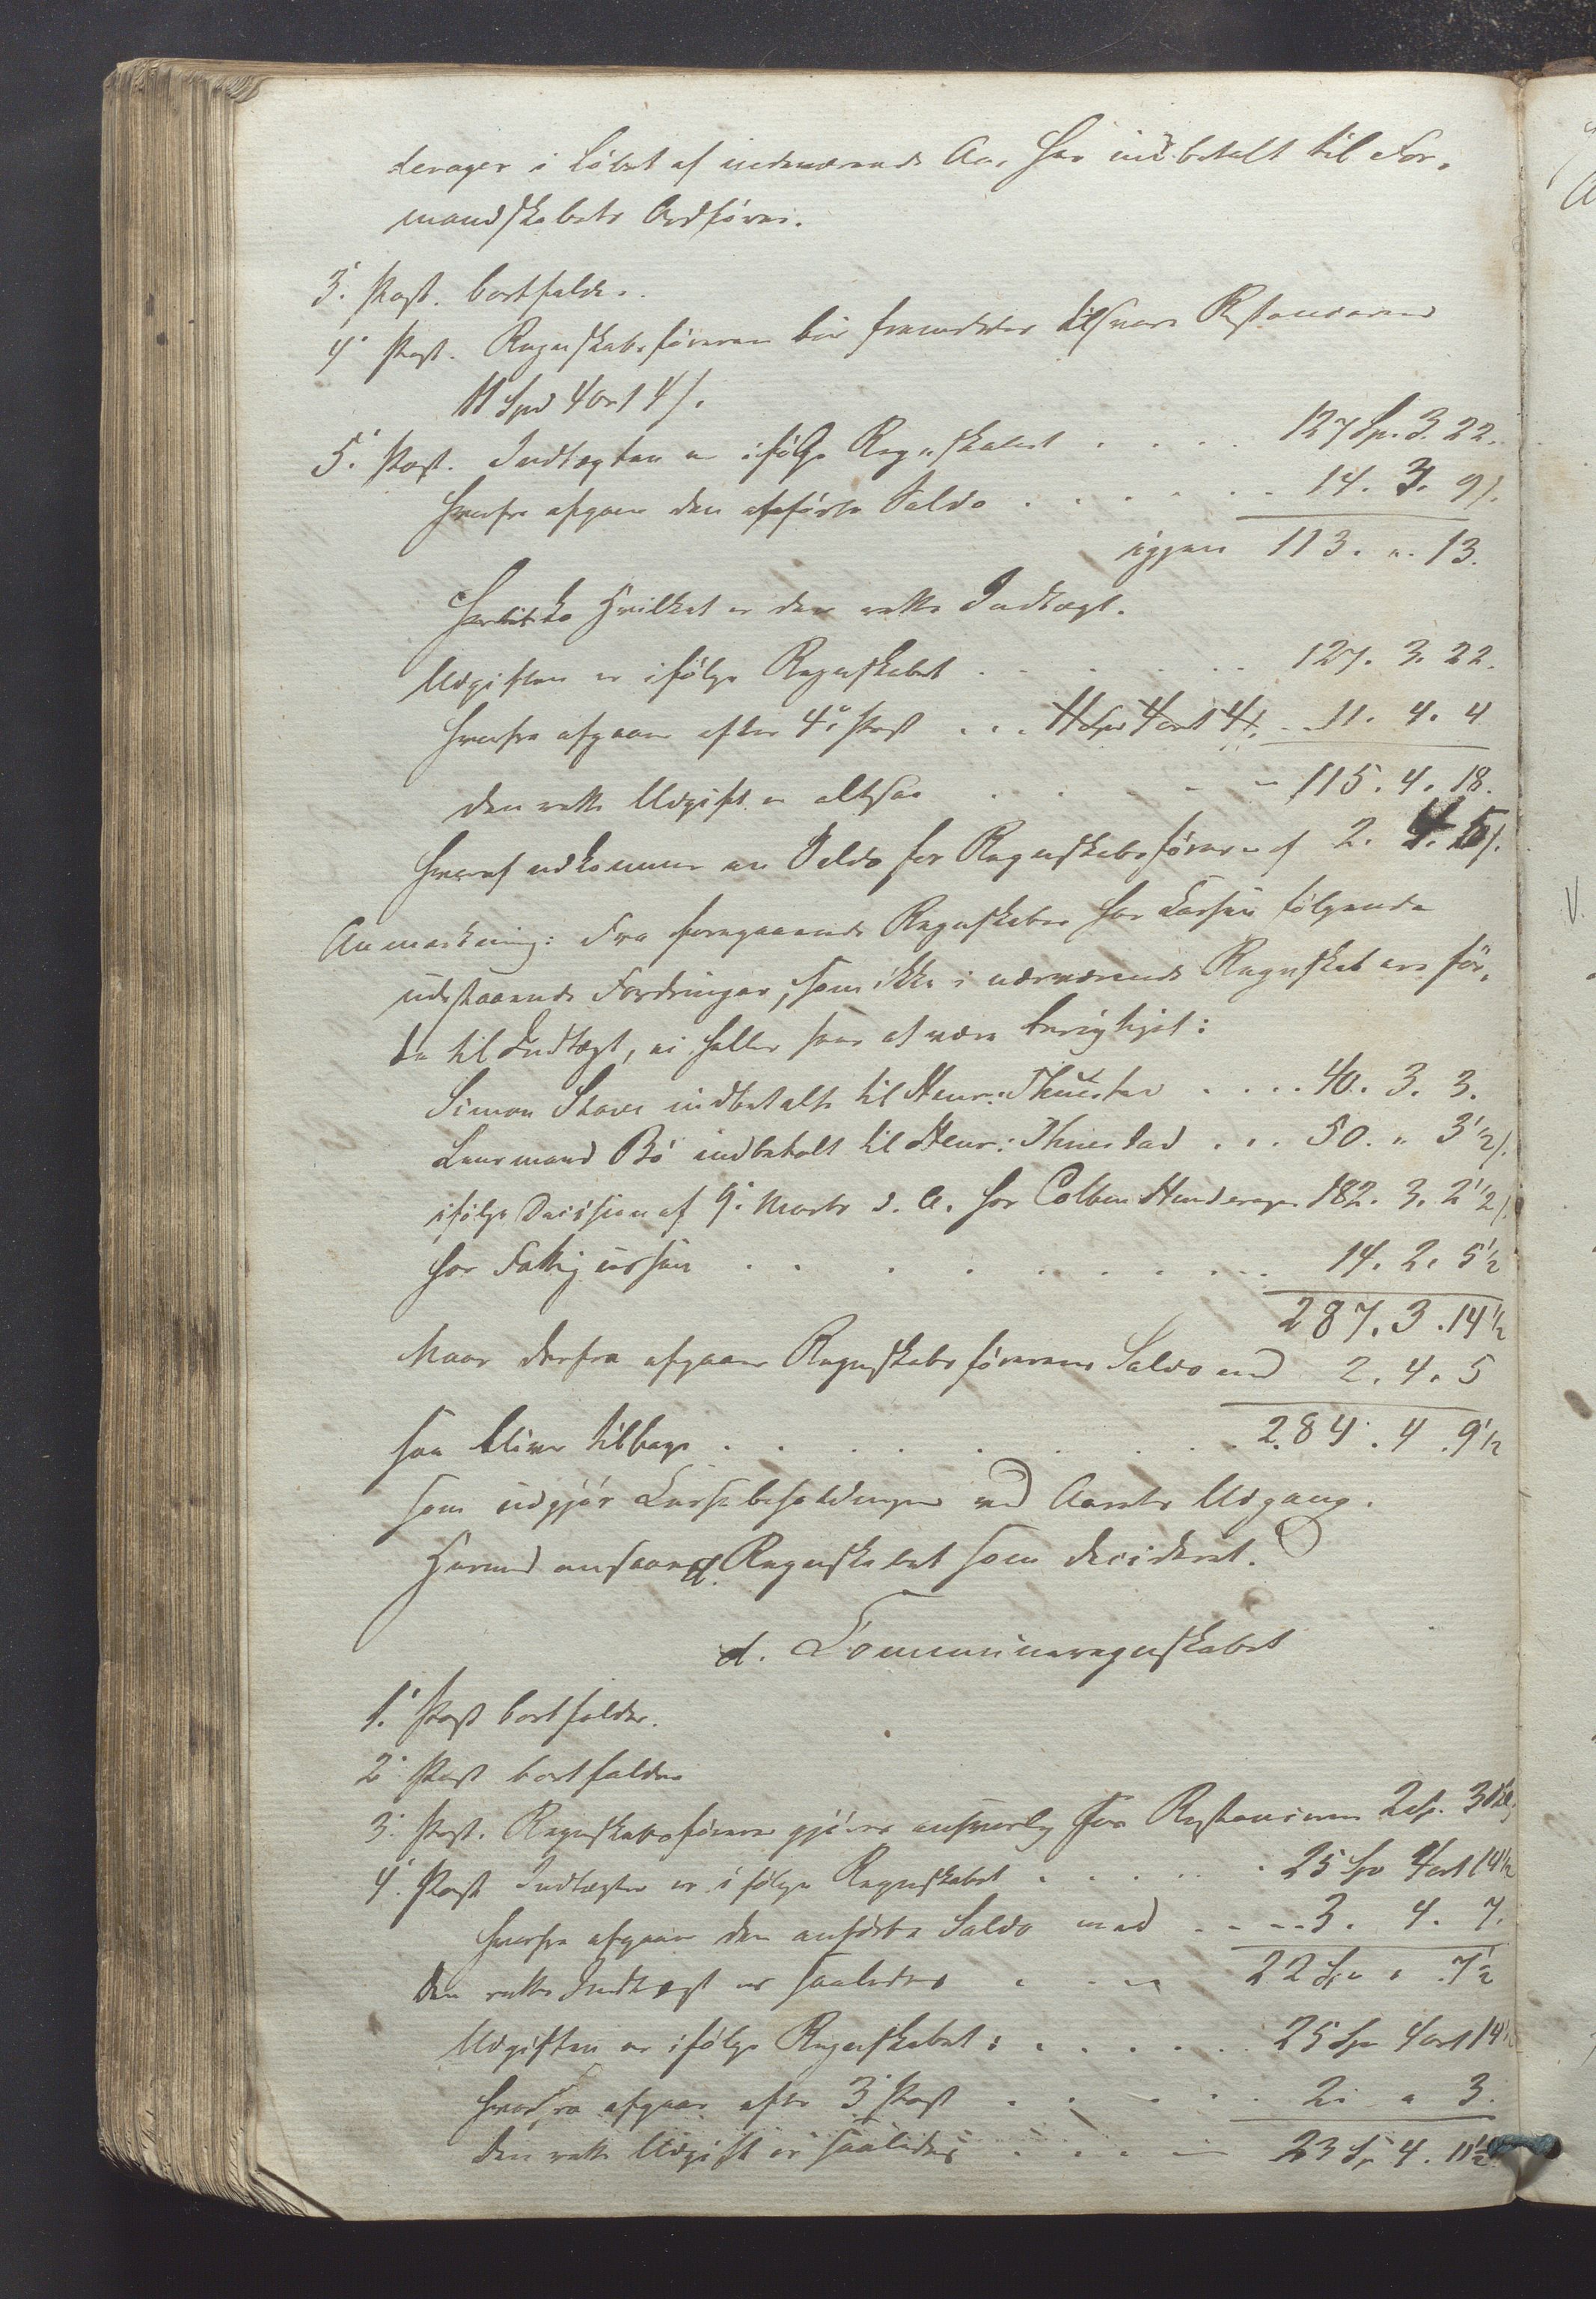 derager i Löbet af indeværende Aar har indbetalt til For-
mandskabets Ordförer.
3. Post. bortfalder.
4. Post. Regnskabsföreren bör fremdeles tilsvare Restancerne
11 Spd 4 Ort 4 s.
5. Post. Indtægten er ifölge Regnskabet . . . . 127 Sp. 3. 22.
hvorfra afgaaer den opförte Saldo . . . . . . 14. 3. 9 s.
igjen 113. „. 13.
Hvilket er den rette Indtægt.
Udgiften er ifölge Regnskabet . . . . . . 127. 3. 22.
hvorfra afgaaer efter 4. Post . . . 11 Spd 4 ort 4 s. - 11. 4. 4
den rette Udgift er altsaa . . . . - 115. 4. 18.
hvoraf udkommer en Saldo for Regnskabsförer af 2. 4. 5 s.
Anmærkning: Fra foregaaende Regnskaber har Cassen fölgende
udestaaende Fordringer, som ikke i nærværende Regnskab ere för-
te til Indtægt, ei heller sees at være berigtiget:
Simon indbetalte til Henr: . . . . 40. 3. 3.
Lensmand Bö indbetalt til Henr: . . . 50. „ 3 1/2 s.
ifölge Decision af 9. Marts d. A. hos Colben 182. 3. 2 1/2 s.
hos Fattigcassen . . . . . . . . 14. 2. 5 1/2
287. 3. 14 1/2
Naar derfra afgaaer Regnskabsförerens Saldo med 2. 4. 5
saa bliver tilbage . . . . . . . . 284. 4. 9 1/2
som udgjör Cassebeholdningen ved Aarets Udgang.
Hermed ansaaes Regnskabet som decideret.
d. Communeregnskabet
1. Post bortfalder.
2. Post bortfalder
3. Post. Regnskabsföreren gjöres ansvarlig for Restancerne 2 Sp. 3
4. Post Indtægten er ifölge Regnskabet . . . . . 25 Spd 4 ort 14 1/2
hvorfra afgaaer den anförte Saldo med - - - 3. 4. 7.
den rette Indtægt er saaledes . . . 22 Sp „ 7 1/2
Udgiften er ifölge Regnskabet: . . . . . . 25 Sp 4 ort 14 1/2
hvorfra afgaaer efter 3 Post . . . . . 2. „ 3.
den rette Udgift er saaledes . . . . 23 Sp 4. 11 1/2